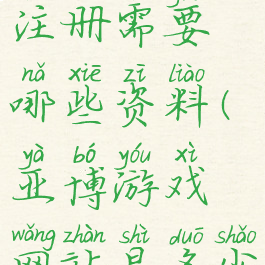 注册需要
nǎ xiē zī liào
哪些资料(
yà bó yóu xì
亚博游戏
wǎng zhàn shì duō shǎo
网站是多少